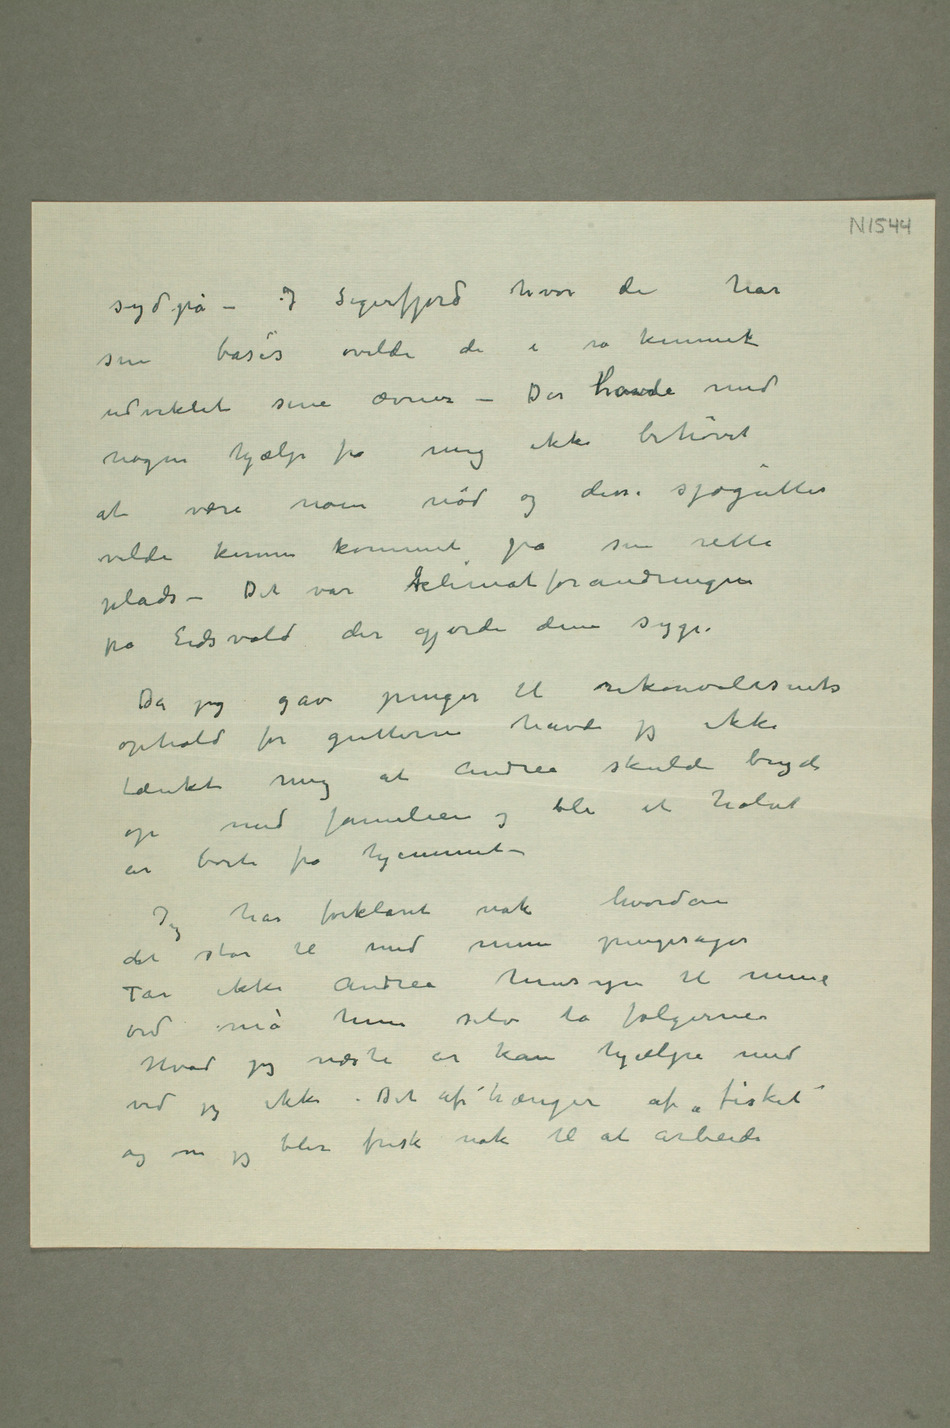 N1544
sydpå – I Sigerfjord hvor de har
sin basis vilde de i ro kunnet
udviklet sine ævner – Der havde med
nogen hjælp fra mig ikke behøvet
at være noen nød og disse sjøgutter
vilde kunne kommet på sin rette
plads – Det var klimatforandringen
på Eidsvold der gjorde dem syge.
Da jeg gav penger til rekonvalesents
ophold for gutterne havde jeg ikke
tænkt mig at Andrea skulde bryde
op med familien og bli et halvt
år borte fra hjemmet –
Jeg har forklaret nok hvordan
det står til med mine pengesager
Tar ikke Andrea hensyn til mine
ord må hun selv ta følgerne
Hvad jeg næste år kan hjælpe med
ved jeg ikke. Det afhænger af „fisket"
og om jeg blir frisk nok til at arbeide